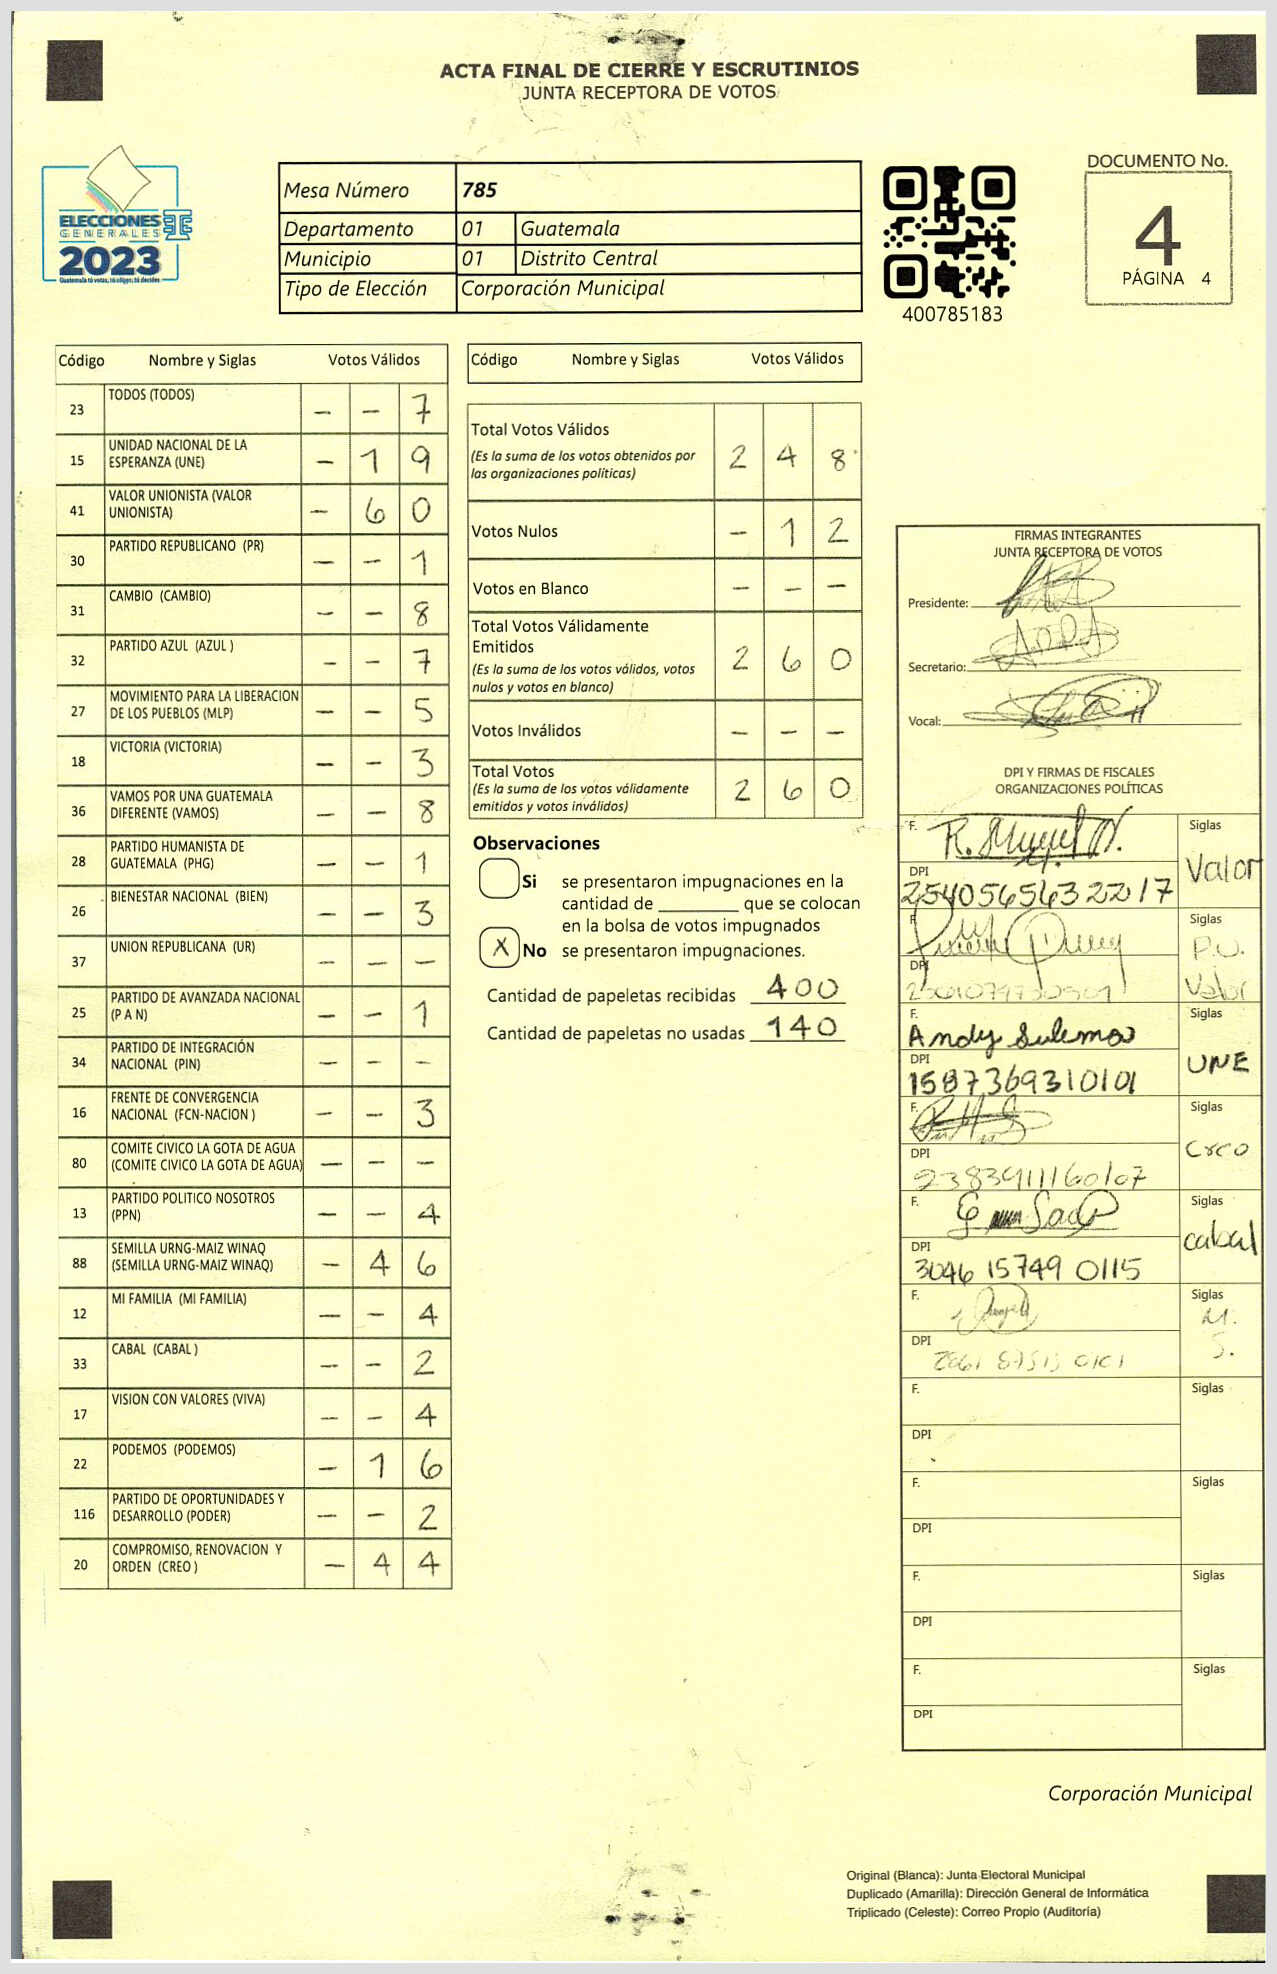 ACTA FINAL DE CIERRE Y ESCRUTINIOS
JUNTA RECEPTORA DE VOTOS
ELECCIONES
GENERALES
2023
Guatemala tú votas, tú eliges, tú decides
Mesa Número 785
Departamento 01 Guatemala
Municipio 01 Distrito Central
Tipo de Elección Corporación Municipal
400785183
DOCUMENTO No.
4
PÁGINA 4
Código Nombre y Siglas Votos Válidos
23 TODOS (TODOS) – – 7
15 UNIDAD NACIONAL DE LA ESPERANZA (UNE) – 1 9
41 VALOR UNIONISTA (VALOR UNIONISTA) – 6 0
30 PARTIDO REPUBLICANO (PR) – – 1
31 CAMBIO (CAMBIO) – – 8
32 PARTIDO AZUL (AZUL ) – – 7
27 MOVIMIENTO PARA LA LIBERACION DE LOS PUEBLOS (MLP) – – 5
18 VICTORIA (VICTORIA) – – 3
36 VAMOS POR UNA GUATEMALA DIFERENTE (VAMOS) – – 8
28 PARTIDO HUMANISTA DE GUATEMALA (PHG) – – 1
26 BIENESTAR NACIONAL (BIEN) – – 3
37 UNION REPUBLICANA (UR) – – –
25 PARTIDO DE AVANZADA NACIONAL (P A N) – – 1
34 PARTIDO DE INTEGRACIÓN NACIONAL (PIN) – – –
16 FRENTE DE CONVERGENCIA NACIONAL (FCN-NACION ) – – 3
80 COMITE CIVICO LA GOTA DE AGUA (COMITE CIVICO LA GOTA DE AGUA) – – –
13 PARTIDO POLITICO NOSOTROS (PPN) – – 4
88 SEMILLA URNG-MAIZ WINAQ (SEMILLA URNG-MAIZ WINAQ) – 4 6
12 MI FAMILIA (MI FAMILIA) – – 4
33 CABAL (CABAL ) – – 2
17 VISION CON VALORES (VIVA) – – 4
22 PODEMOS (PODEMOS) – 1 6
116 PARTIDO DE OPORTUNIDADES Y DESARROLLO (PODER) – – 2
20 COMPROMISO, RENOVACION Y ORDEN (CREO ) – 4 4
Código Nombre y Siglas Votos Válidos
Total Votos Válidos 2 4 8
(Es la suma de los votos obtenidos por
las organizaciones políticas)
Votos Nulos – 1 2
Votos en Blanco – – –
Total Votos Válidamente
Emitidos 2 6 0
(Es la suma de los votos válidos, votos
nulos y votos en blanco)
Votos Inválidos – – –
Total Votos 2 6 0
(Es la suma de los votos válidamente
emitidos y votos inválidos)
Observaciones
Si se presentaron impugnaciones en la
cantidad de ________ que se colocan
en la bolsa de votos impugnados
X No se presentaron impugnaciones.
Cantidad de papeletas recibidas 400
Cantidad de papeletas no usadas 140
FIRMAS INTEGRANTES
JUNTA RECEPTORA DE VOTOS
Presidente:
Secretario:
Vocal:
DPI Y FIRMAS DE FISCALES
ORGANIZACIONES POLÍTICAS
F. Siglas
Valor
DPI
F. Siglas
P.U.
Valor
DPI
F. Andy Siglas
UNE
DPI
1587369310101
F. Siglas
Creo
DPI
F. Siglas
cabal
DPI
3046 15749 0115
F. Siglas
M.
S.
DPI
F. Siglas
DPI
F. Siglas
DPI
F. Siglas
DPI
F. Siglas
DPI
Corporación Municipal
Original (Blanca): Junta Electoral Municipal
Duplicado (Amarilla): Dirección General de Informática
Triplicado (Celeste): Correo Propio (Auditoría)